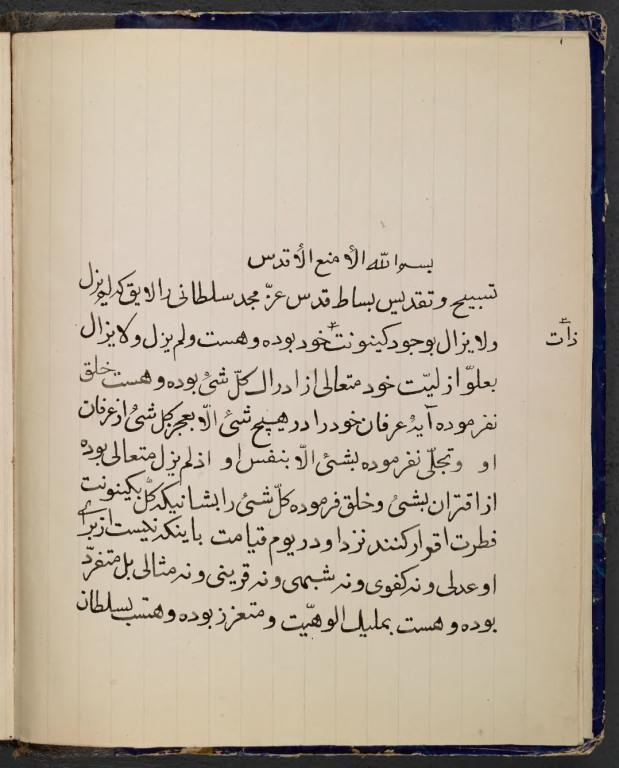 بسم الله الامنع الاقدس
تسبیح و تقدیس بساط قدس عزّ مجد سلطانی را لایق که لم یزل
ولا یزال بوجود کینونت خود بوده و هست ولم یزل ولا یزال
ذات
بعلوّ ازلیّت خود متعالی از ادراك کلّ شئ بوده و هست خلق
نفرموده آیهٔ عرفان خود را در هیچ شئ الّا بعجز کل شئ از عرفان
او و تجلّی نفرموده بشئ الّا بنفس او اذ لم یزل متعالی بوده
از اقتران بشئ و خلق فرموده کلّ شئ را بشانیکه کلّ بکینونت
فطرت اقرار کنند نزد او در یوم قیامت باینکه نیست از برای
او عدلی و نه کفوی و نه شبهی و نه قرینی و نه مثالی بل متفرّد
بوده و هست بملیك الوهیّت و متعزز بوده و هست بسلطان